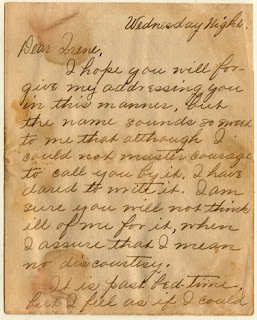 Wednesday Night.
Dear Irene,
I hope you will for-
give my addressing you
in this manner, but
the name sounds so sweet
to me that although I
could not muster courage
to call you by it, I have
dared to write it. I am
sure you will not think
ill of me for it, when
I assure that I mean
no discourtesy.
It is past bed-time,
but I feel as if I could